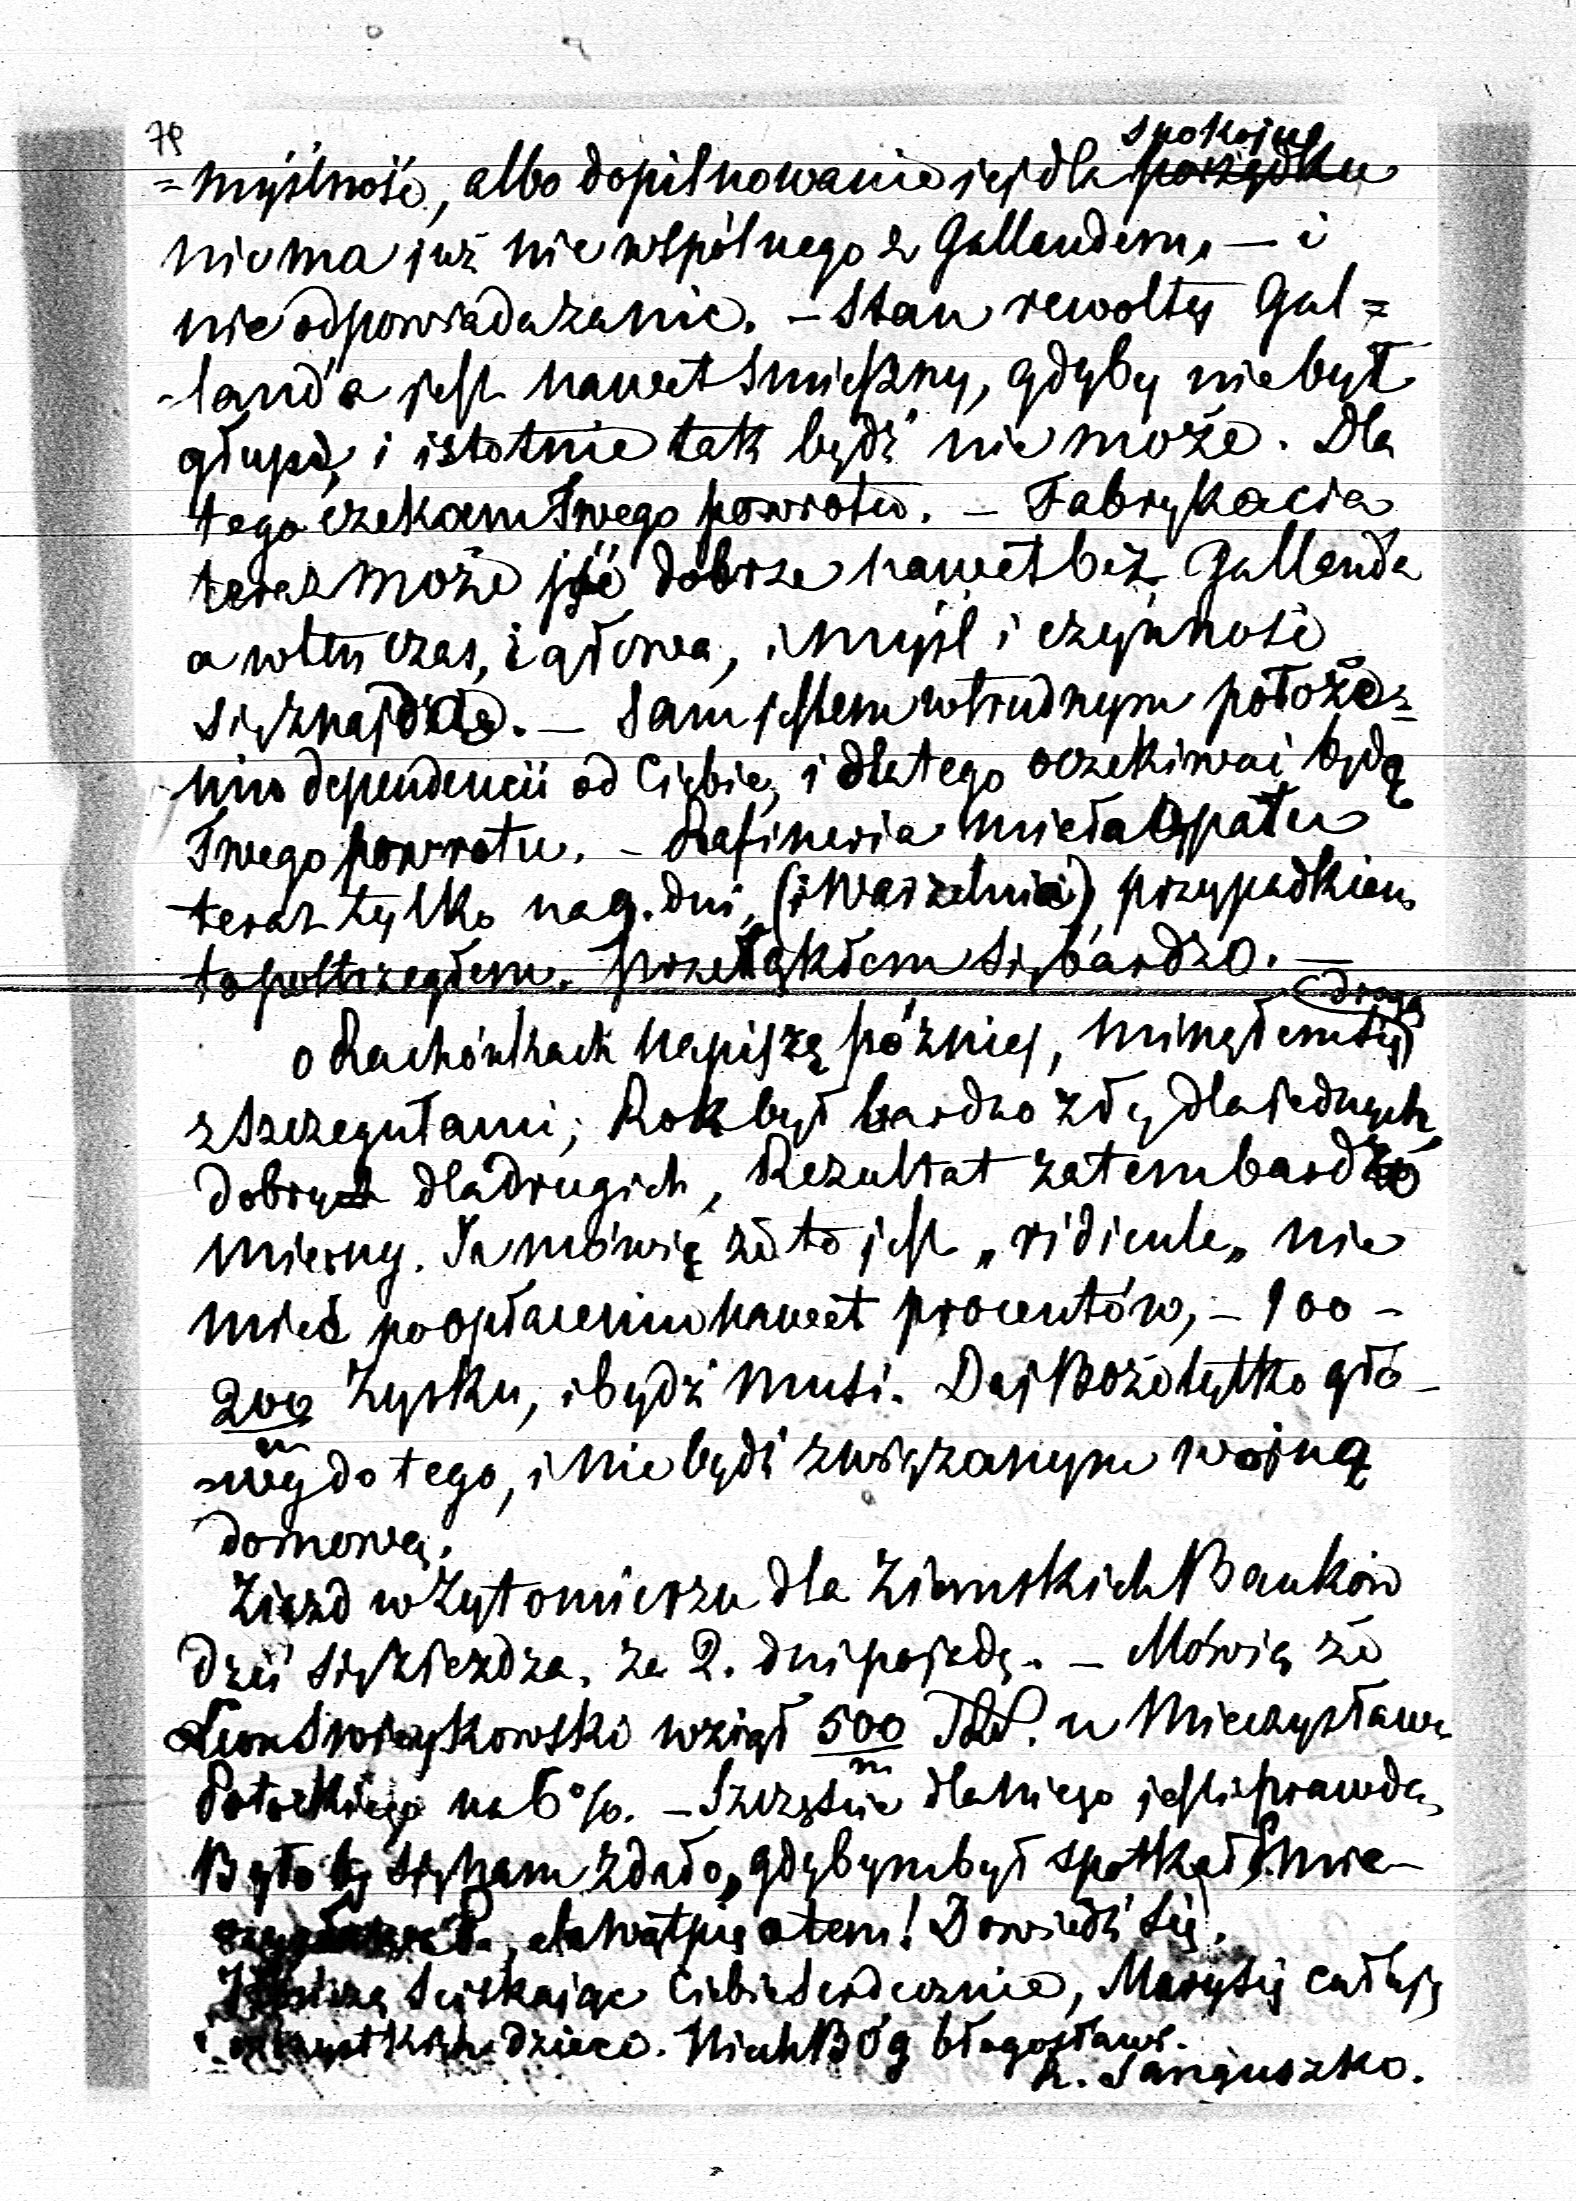 79
spokojuą
=myślność, albo dopilnowanie jej dla porządku
niema już nic wspólnego z Gallandem, — i
nie odpowiada zanic. — Stan rewolty Gal=
-land'a jest nawet śmieszny, gdyby nie był
głupi, i istotnie tak bydź nie może. Dla
tego czekam Twego powrotu. — Fabrykacia
teraz może iść dobrze nawet bez Gallanda
a wten czas, i głowa, i myśl i czynność
się znajdzie. — Sam jestem w trudnym położe=
niu dependencii od Ciebie, i dlatego oczekiwać będę
Twego powrotu. — Rafineria miała opału
teraz tylko na 9. dni, (i Warzelnia) przypadkiem
to postrzegłem. Przeląkłem się bardzo. —
drogą
o Rachónkach napiszę później, minąłem się
z szczegułami; Rok był bardzo zły dla jednych
dobry dla drugich, Rezultat zatem bardzo
mierny. Ja mówię że to jest „ridicule„ nie
mieć po opłaceniu nawet procentów, — 100 —
200 zysku, i bydź musi. Daj Boże tylko gło-
m
-wy do tego, i nie bydź związanym wojną
domową.
Ziazd w Żytomierzu dla Ziemskich Banków
dziś się zjeżdża, za 2. dni pojadę. — Mówią że
Leon Świeykowski wziął 500 Rbl. u Mieczysława
m
Potockiego na 6%. — Szczęście dla niego jeśli prawda,
Było by się nam zdało, gdybym był spotkał Mie-
P., ale wątpię o tem! Dowiedź się.
ściskając Ciebie serdecznie, Marysię całuję
i wszystkich dzieci. Niech Bóg błogosławi.
R. Sanguszko.